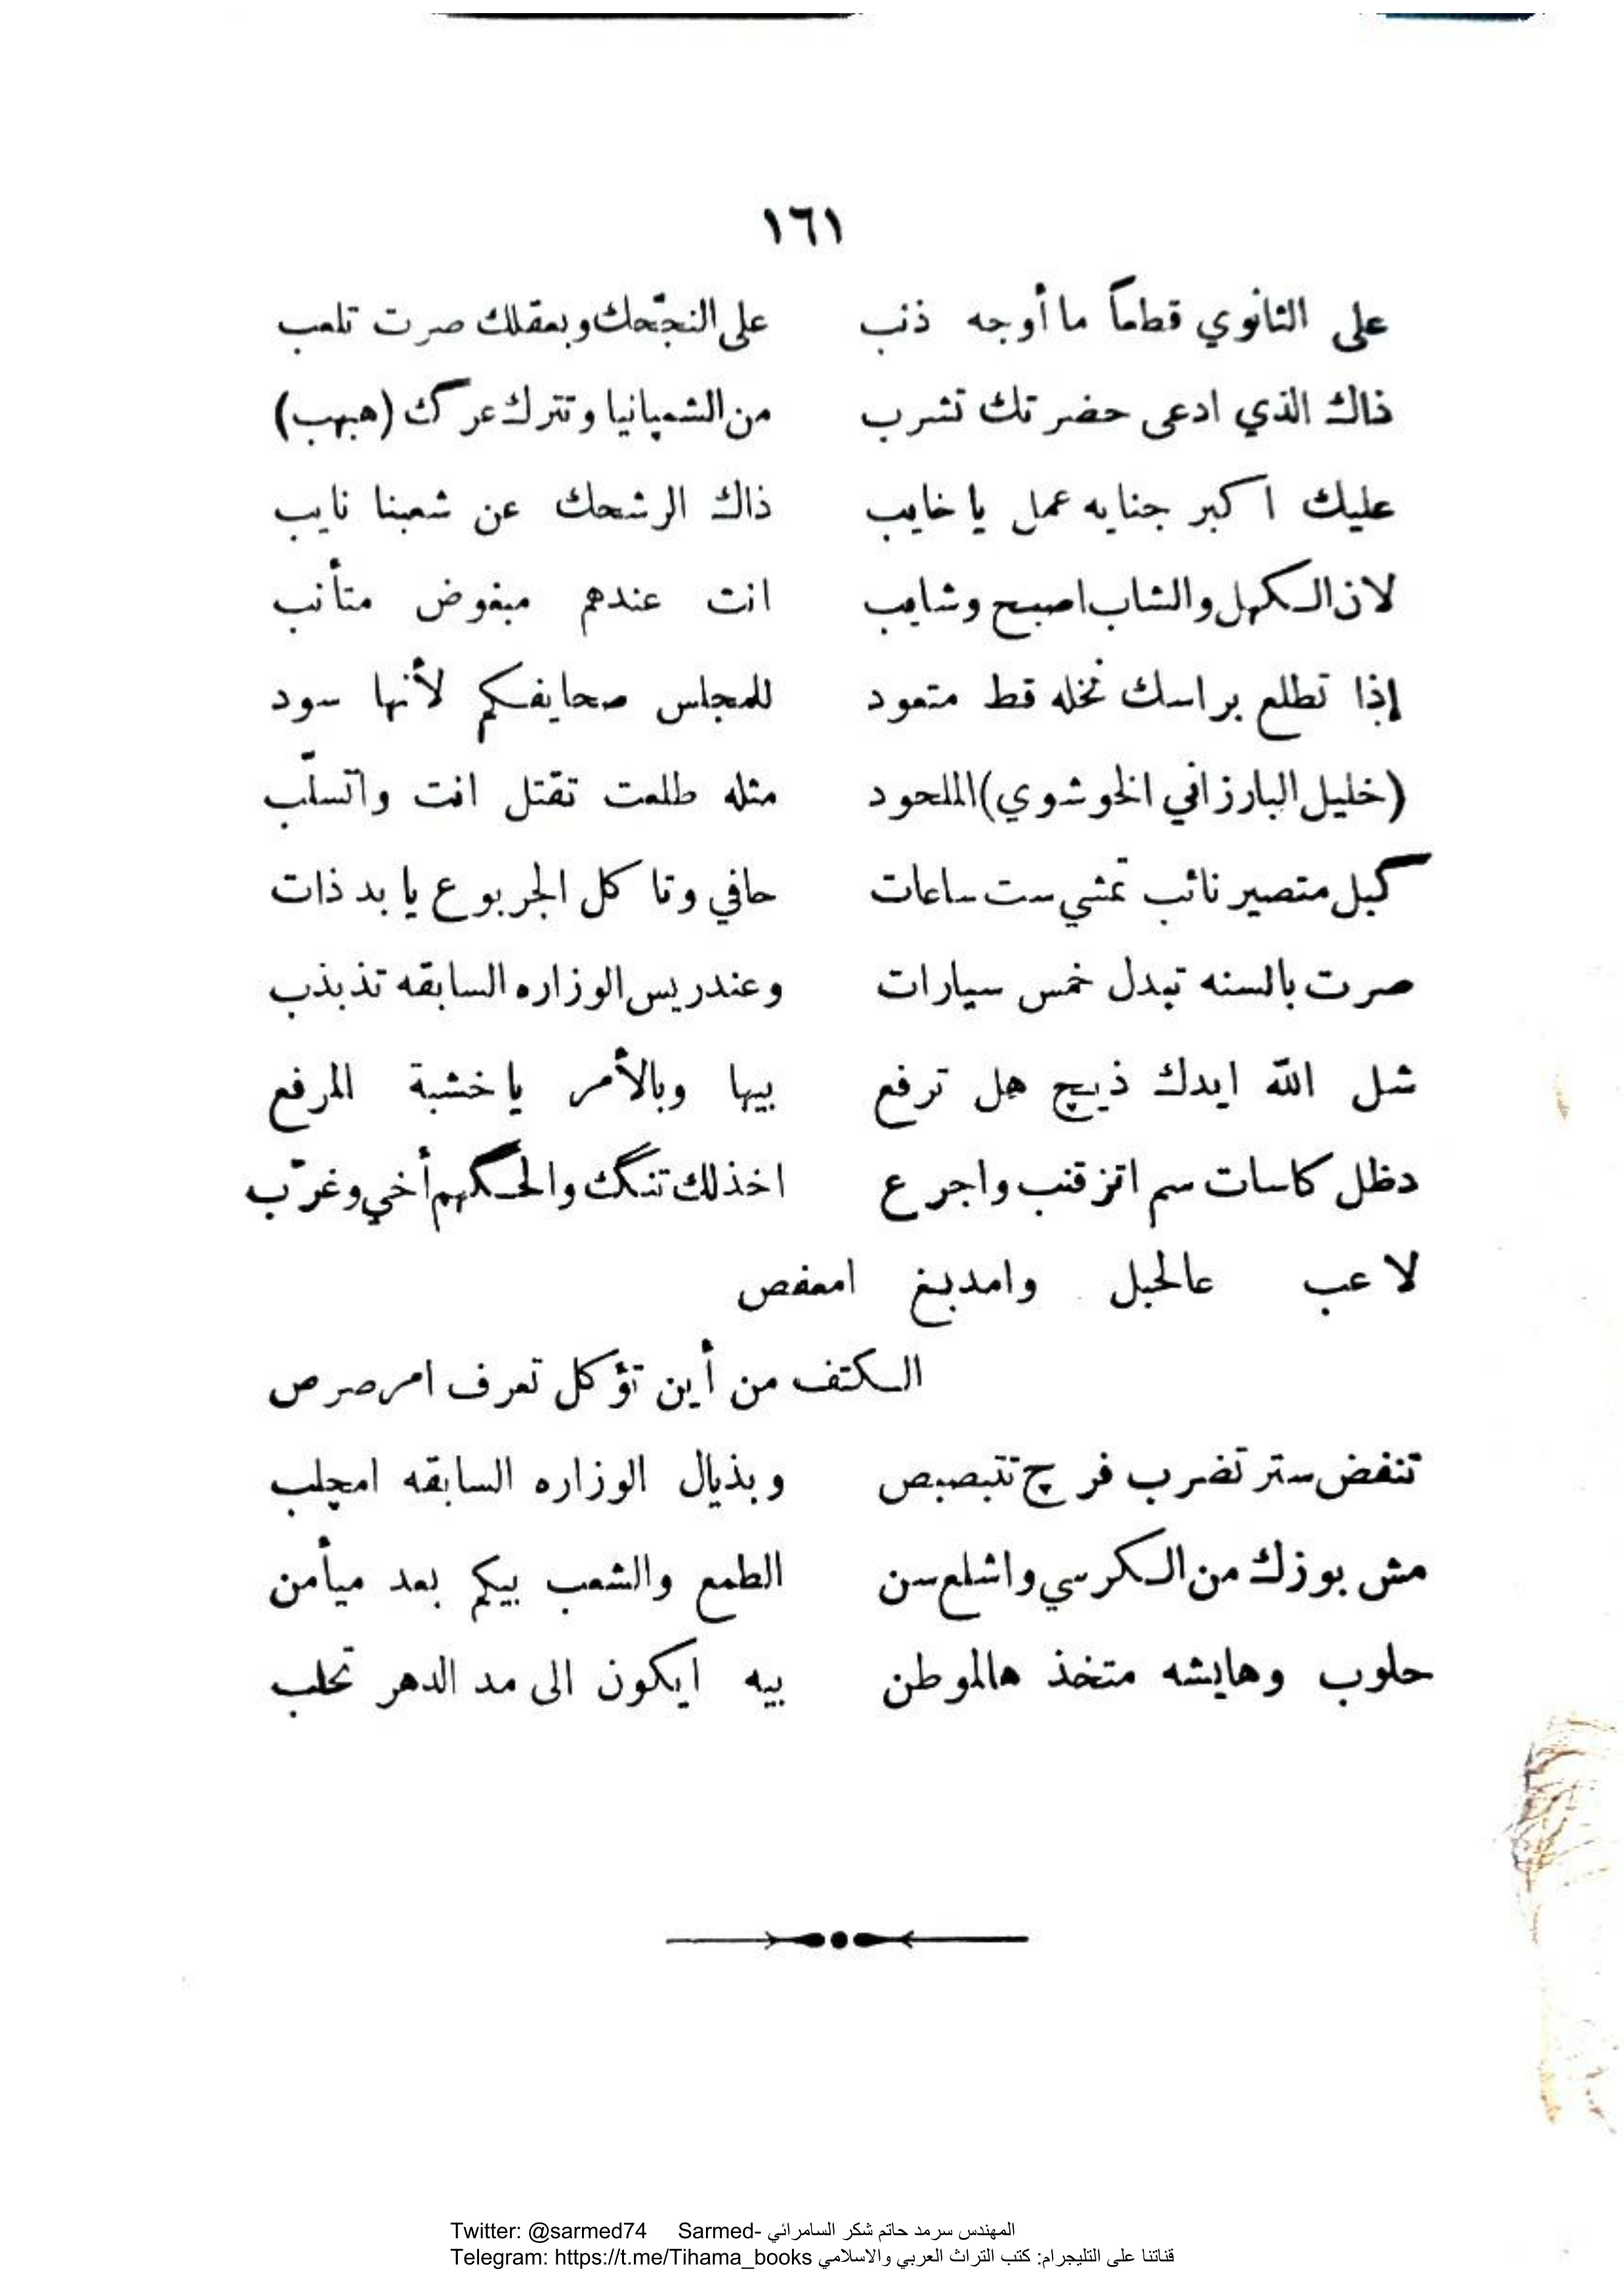 ١٦١
على الثانوي قطعاً ما أوجه ذنب على النجّحك وبعقلك صرت تلعب
ذاك الذي ادعى حضرتك تشرب من الشمپانيا وتترك عرگ (هبهب)
عليك اكبر جنايه عمل يا خايب ذاك الرشحك عن شعبنا نايب
لان الكهل والشاب اصبح وشايب انت عندهم مبغوض متأنب
إذا تطلع براسك نخله قط متعود للمجلس صحايفكم لأنها سود
(خليل البارزاني الخوشوي) الملحود مثله طلعت تقتل انت واتسلّب
گبل متصير نائب تمشي ست ساعات حافي وتاكل الجربوع يا بد ذات
صرت بالسنه تبدل خمس سيارات وعند ريس الوزاره السابقه تذبذب
شل الله ايدك ذيچ هل ترفع بيها وبالأمر يا خشبة المرفع
دظل كاسات سم اتزقنب واجرع اخذلك تنگ والحگهم أخي وغرّب
لاعب عالحبل وامدبغ امعفص
الكتف من أين تؤكل تعرف امرصرص
تنفض ستر تضرب فرچ تتبصبص وبذيال الوزاره السابقه امچلب
مش بوزك من الكرسي واشلع سن الطمع والشعب بيكم بعد ميأمن
حلوب وهايشه متخذ هالموطن بيه ايكون الى مد الدهر تحلب
Twitter: @sarmed74 Sarmed- المهندس سرمد حاتم شكر السامرائي
Telegram: https://t.me/Tihama_books قناتنا على التليجرام: كتب التراث العربي والاسلامي